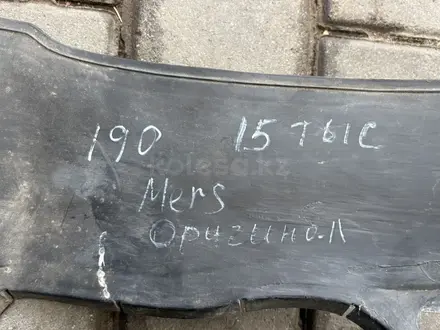 190 15 тыс
kolesa.kz
Mers
Оригинал